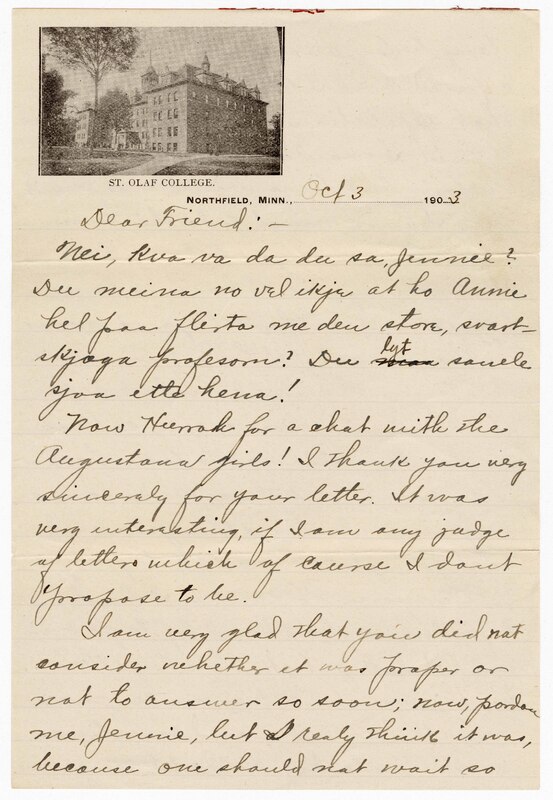 ST. OLAF COLLEGE.
NORTHFIELD, MINN., Oct 3 1903
Dear Friend: —
Nei, kva va da du sa, Jennie?
Du meina no vel ikje at ho Annie
hel paa flirta me den store, svart-
skjæga profesorn? Du lyt sanele
sjaa ette hena!
Now Hurrah for a chat with the
Augustana girls! I thank you very
sincerely for your letter. It was
very interesting, if I am any judge
of letters which of course I don't
propose to be.
I am very glad that you did not
consider whether it was proper or
not to answer so soon; now, pardon
me, Jennie, but I realy think it was,
because one should not wait so